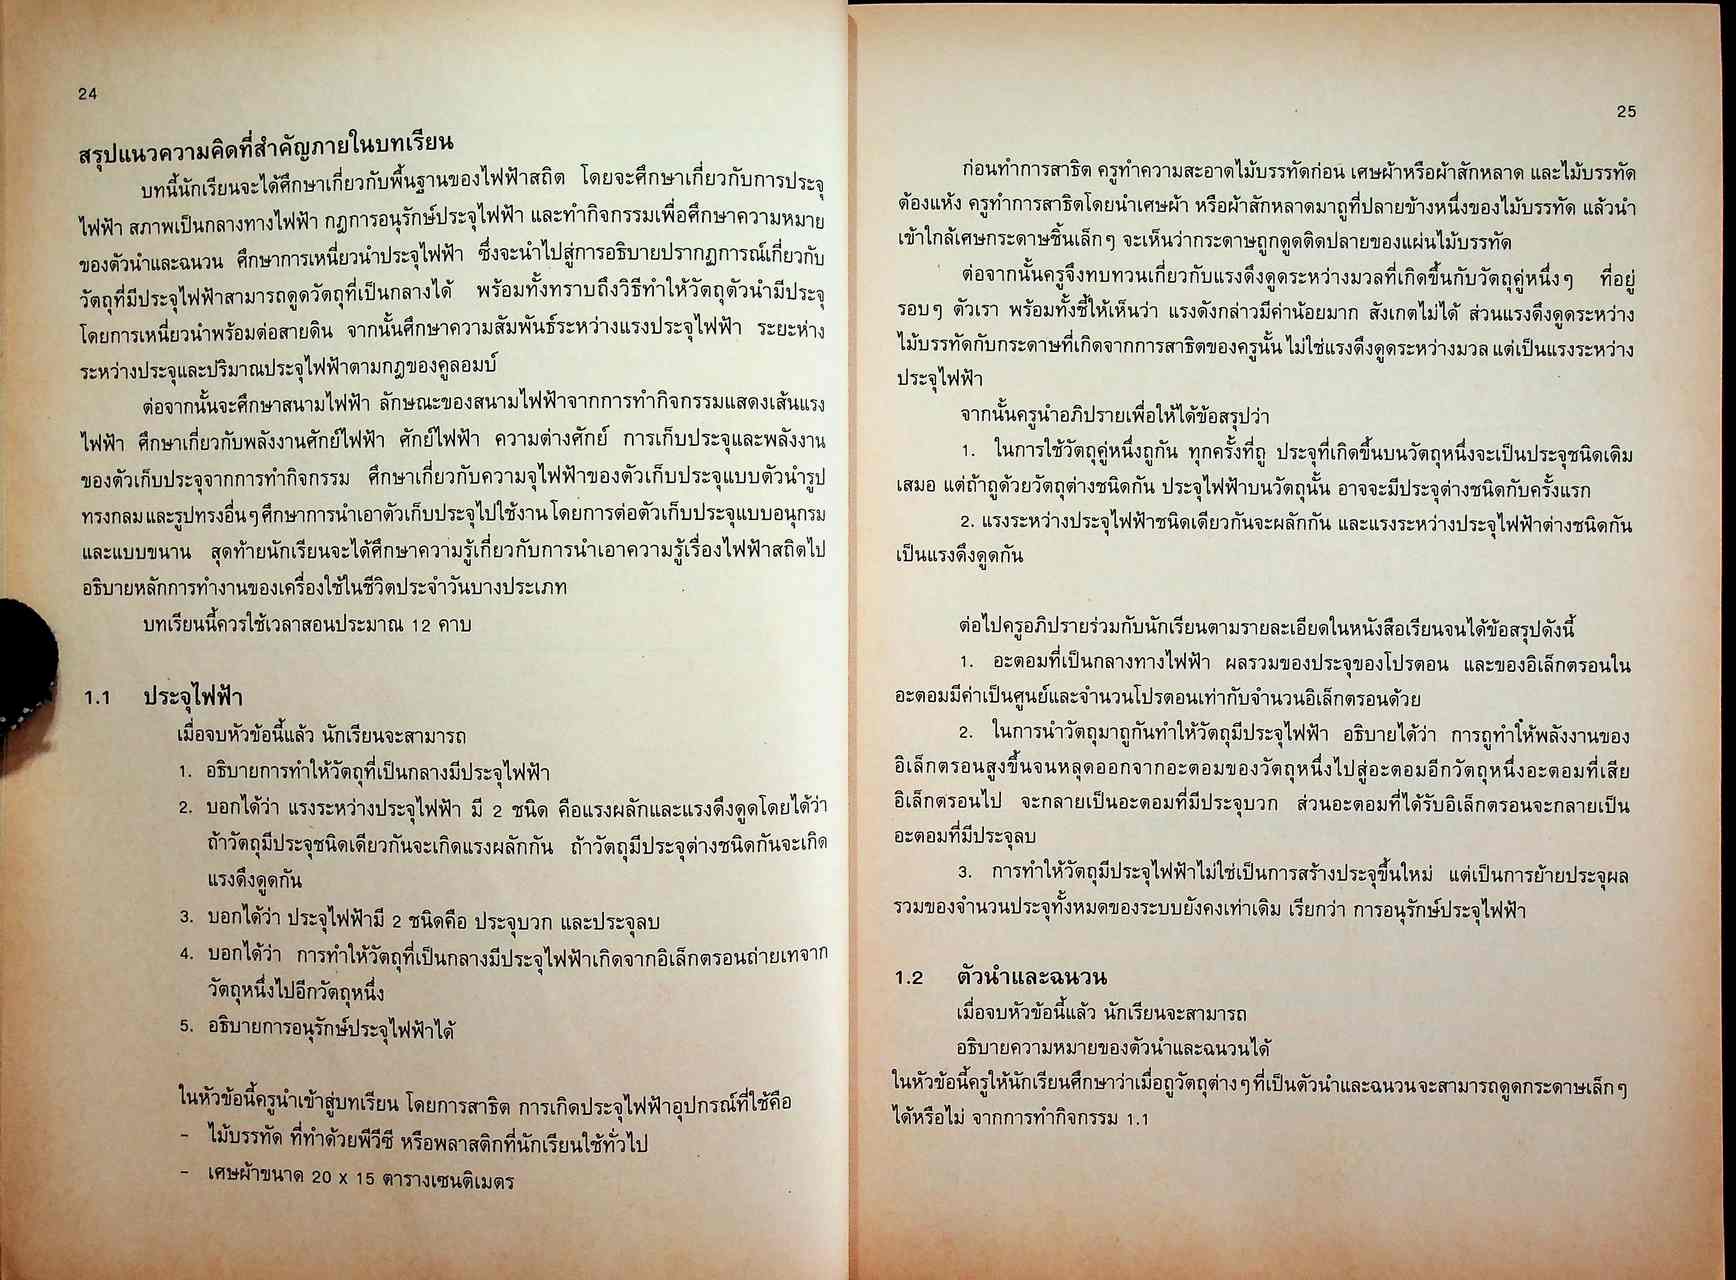 24
สรุปแนวความคิดที่สำคัญภายในบทเรียน
บทนี้นักเรียนจะได้ศึกษาเกี่ยวกับพื้นฐานของไฟฟ้าสถิต โดยจะศึกษาเกี่ยวกับการประจุ
ไฟฟ้า สภาพเป็นกลางทางไฟฟ้า กฎการอนุรักษ์ประจุไฟฟ้า และทำกิจกรรมเพื่อศึกษาความหมาย
ของตัวนำและฉนวน ศึกษาการเหนี่ยวนำประจุไฟฟ้า ซึ่งจะนำไปสู่การอธิบายปรากฏการณ์เกี่ยวกับ
วัตถุที่มีประจุไฟฟ้าสามารถดูดวัตถุที่เป็นกลางได้ พร้อมทั้งทราบถึงวิธีทำให้วัตถุตัวนำมีประจุ
โดยการเหนี่ยวนำพร้อมต่อสายดิน จากนั้นศึกษาความสัมพันธ์ระหว่างแรงประจุไฟฟ้า ระยะห่าง
ระหว่างประจุและปริมาณประจุไฟฟ้าตามกฎของคูลอมบ์
ต่อจากนั้นจะศึกษาสนามไฟฟ้า ลักษณะของสนามไฟฟ้าจากการทำกิจกรรมแสดงเส้นแรง
ไฟฟ้า ศึกษาเกี่ยวกับพลังงานศักย์ไฟฟ้า ศักย์ไฟฟ้า ความต่างศักย์ การเก็บประจุและพลังงาน
ของตัวเก็บประจุจากการทำกิจกรรม ศึกษาเกี่ยวกับความจุไฟฟ้าของตัวเก็บประจุแบบตัวนำรูป
ทรงกลม และรูปทรงอื่นๆ ศึกษาการนำเอาตัวเก็บประจุไปใช้งาน โดยการต่อตัวเก็บประจุแบบอนุกรม
และแบบขนาน สุดท้ายนักเรียนจะได้ศึกษาความรู้เกี่ยวกับการนำเอาความรู้เรื่องไฟฟ้าสถิตไป
อธิบายหลักการทำงานของเครื่องใช้ในชีวิตประจำวันบางประเภท
บทเรียนนี้ควรใช้เวลาสอนประมาณ 12 คาบ
1.1 ประจุไฟฟ้า
เมื่อจบหัวข้อนี้แล้ว นักเรียนจะสามารถ
1. อธิบายการทำให้วัตถุที่เป็นกลางมีประจุไฟฟ้า
2. บอกได้ว่า แรงระหว่างประจุไฟฟ้า มี 2 ชนิด คือแรงผลักและแรงดึงดูดโดยได้ว่า
ถ้าวัตถุมีประจุชนิดเดียวกันจะเกิดแรงผลักกัน ถ้าวัตถุมีประจุต่างชนิดกันจะเกิด
แรงดึงดูดกัน
3. บอกได้ว่า ประจุไฟฟ้ามี 2 ชนิดคือ ประจุบวก และประจุลบ
4. บอกได้ว่า การทำให้วัตถุที่เป็นกลางมีประจุไฟฟ้าเกิดจากอิเล็กตรอนถ่ายเทจาก
วัตถุหนึ่งไปอีกวัตถุหนึ่ง
5. อธิบายการอนุรักษ์ประจุไฟฟ้าได้
ในหัวข้อนี้ครูนำเข้าสู่บทเรียน โดยการสาธิต การเกิดประจุไฟฟ้าอุปกรณ์ที่ใช้คือ
- ไม้บรรทัด ที่ทำด้วยพีวีซี หรือพลาสติกที่นักเรียนใช้ทั่วไป
- เศษผ้าขนาด 20 x 15 ตารางเซนติเมตร
25
ก่อนทำการสาธิต ครูทำความสะอาดไม้บรรทัดก่อน เศษผ้าหรือผ้าสักหลาด และไม้บรรทัด
ต้องแห้ง ครูทำการสาธิตโดยนำเศษผ้า หรือผ้าสักหลาดมาถูที่ปลายข้างหนึ่งของไม้บรรทัด แล้วนำ
เข้าใกล้เศษกระดาษชิ้นเล็กๆ จะเห็นว่ากระดาษถูกดูดติดปลายของแผ่นไม้บรรทัด
ต่อจากนั้นครูจึงทบทวนเกี่ยวกับแรงดึงดูดระหว่างมวลที่เกิดขึ้นกับวัตถุคู่หนึ่งๆ ที่อยู่
รอบๆ ตัวเรา พร้อมทั้งชี้ให้เห็นว่า แรงดังกล่าวมีค่าน้อยมาก สังเกตไม่ได้ ส่วนแรงดึงดูดระหว่าง
ไม้บรรทัดกับกระดาษที่เกิดจากการสาธิตของครูนั้น ไม่ใช่แรงดึงดูดระหว่างมวล แต่เป็นแรงระหว่าง
ประจุไฟฟ้า
จากนั้นครูนำอภิปรายเพื่อให้ได้ข้อสรุปว่า
1. ในการใช้วัตถุคู่หนึ่งถูกัน ทุกครั้งที่ถู ประจุที่เกิดขึ้นบนวัตถุหนึ่งจะเป็นประจุชนิดเดิม
เสมอ แต่ถ้าถูด้วยวัตถุต่างชนิดกัน ประจุไฟฟ้าบนวัตถุนั้น อาจจะมีประจุต่างชนิดกับครั้งแรก
2. แรงระหว่างประจุไฟฟ้าชนิดเดียวกันจะผลักกัน และแรงระหว่างประจุไฟฟ้าต่างชนิดกัน
เป็นแรงดึงดูดกัน
ต่อไปครูอภิปรายร่วมกับนักเรียนตามรายละเอียดในหนังสือเรียนจนได้ข้อสรุปดังนี้
1. อะตอมที่เป็นกลางทางไฟฟ้า ผลรวมของประจุของโปรตอน และของอิเล็กตรอนใน
อะตอมมีค่าเป็นศูนย์และจำนวนโปรตอนเท่ากับจำนวนอิเล็กตรอนด้วย
2. ในการนำวัตถุมาถูกันทำให้วัตถุมีประจุไฟฟ้า อธิบายได้ว่า การถูทำให้พลังงานของ
อิเล็กตรอนสูงขึ้นจนหลุดออกจากอะตอมของวัตถุหนึ่งไปสู่อะตอมอีกวัตถุหนึ่งอะตอมที่เสีย
อิเล็กตรอนไป จะกลายเป็นอะตอมที่มีประจุบวก ส่วนอะตอมที่ได้รับอิเล็กตรอนจะกลายเป็น
อะตอมที่มีประจุลบ
3. การทำให้วัตถุมีประจุไฟฟ้าไม่ใช่เป็นการสร้างประจุขึ้นใหม่ แต่เป็นการย้ายประจุผล
รวมของจำนวนประจุทั้งหมดของระบบยังคงเท่าเดิม เรียกว่า การอนุรักษ์ประจุไฟฟ้า
1.2 ตัวนำและฉนวน
เมื่อจบหัวข้อนี้แล้ว นักเรียนจะสามารถ
อธิบายความหมายของตัวนำและฉนวนได้
ในหัวข้อนี้ครูให้นักเรียนศึกษาว่าเมื่อถูวัตถุต่างๆ ที่เป็นตัวนำและฉนวน จะสามารถดูดกระดาษเล็กๆ
ได้หรือไม่ จากการทำกิจกรรม 1.1